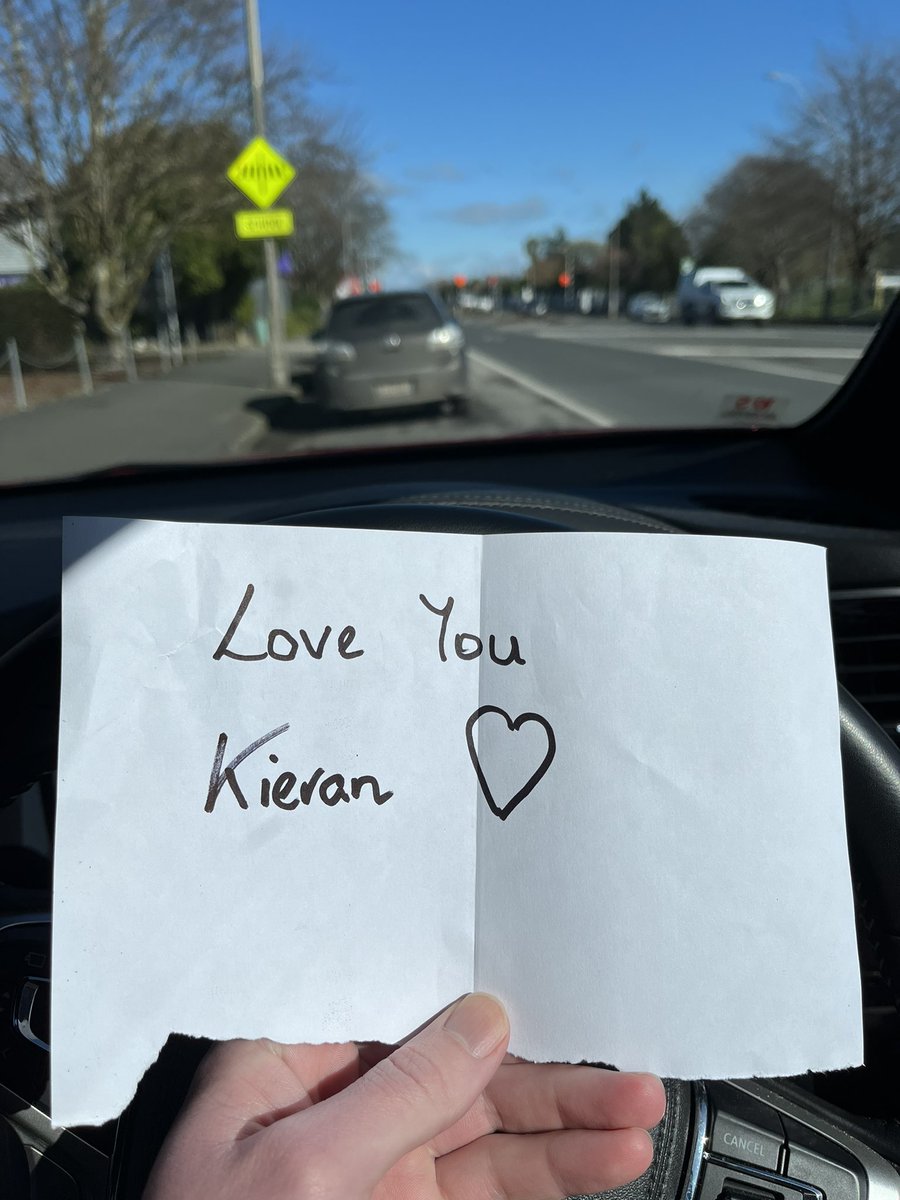 Love You
Kieran ♡
CANCEL